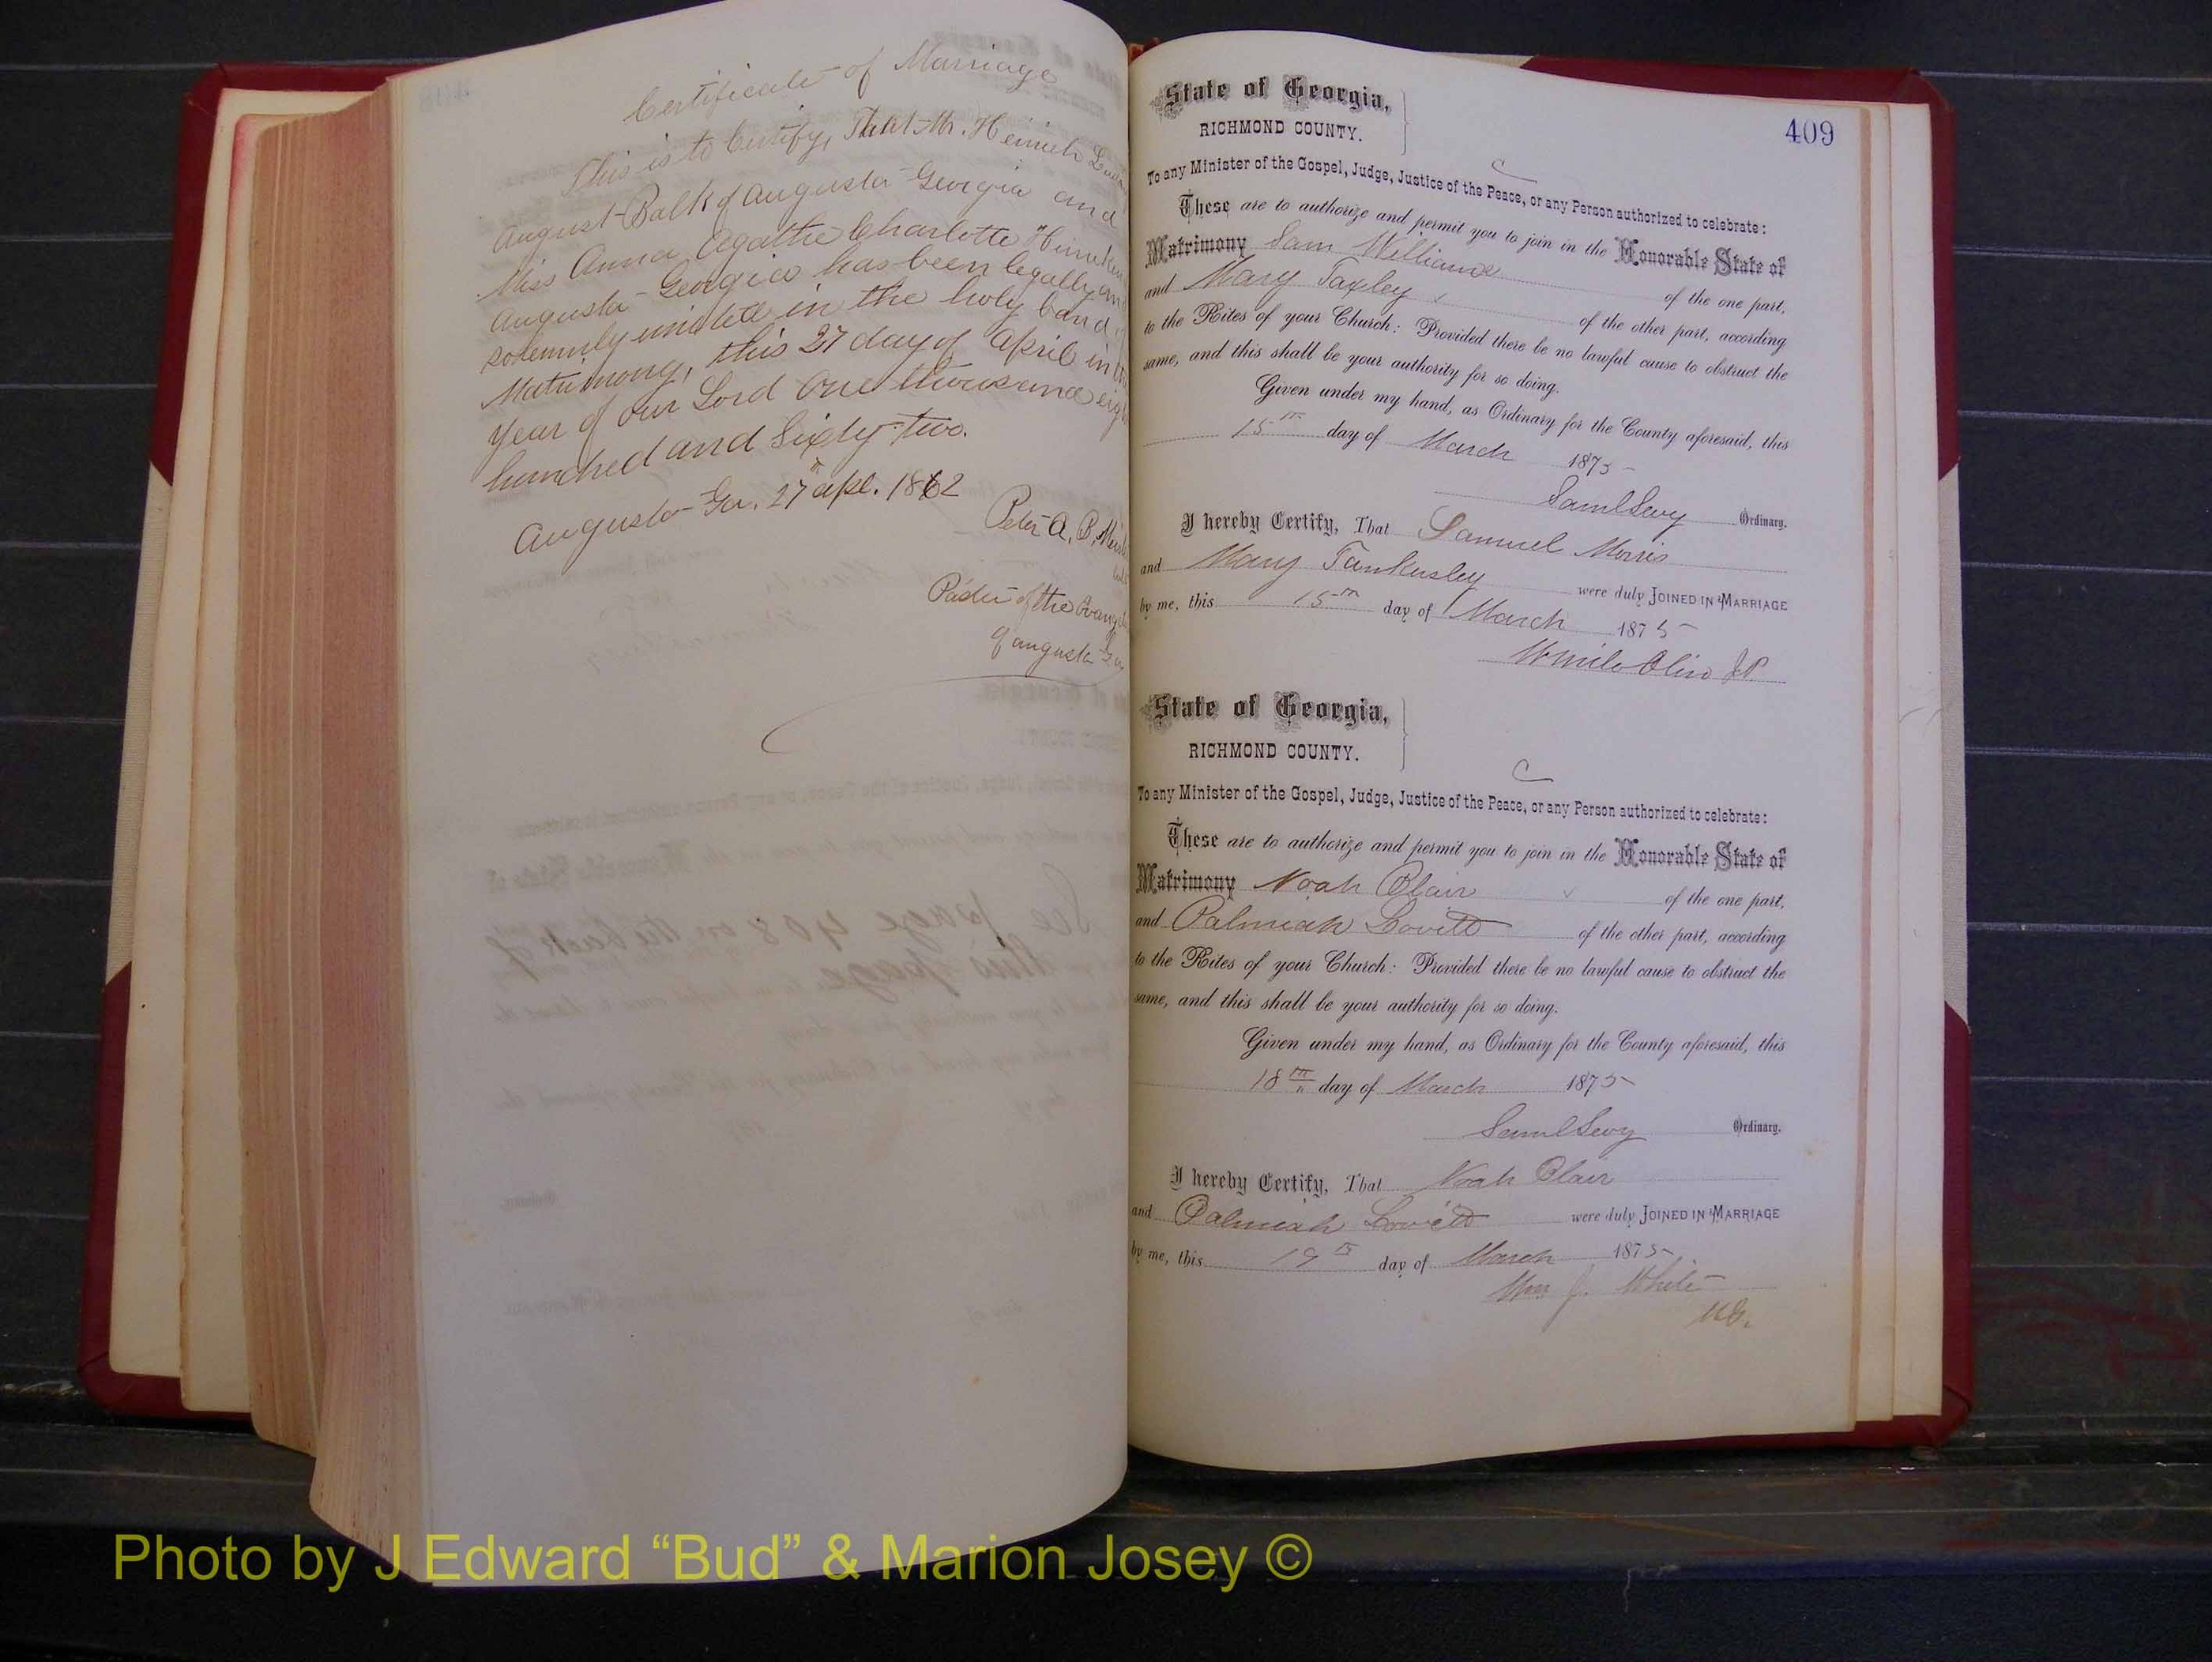 Certificate of Marriage
This is to Certify, That Mr. Heinrich
August Balk of Augusta Georgia and
Miss Anna Agathe Charlotte
Augusta Georgia has been legally
solemnly united in the holy band
Matrimony, this 27 day of April in
year of our Lord One thousand
hundred and Sixty-two.
Augusta Ga. 27th apl. 1862
Peter A. B.
of the
of augusta
409
State of Georgia,
RICHMOND COUNTY.
C
To any Minister of the Gospel, Judge, Justice of the Peace, or any Person authorized to celebrate:
These are to authorize and permit you to join in the Honorable State of
Matrimony Sam Williams of the one part,
and Mary Taxley of the other part, according
to the Rites of your Church: Provided there be no lawful cause to obstruct the
same, and this shall be your authority for so doing.
Given under my hand, as Ordinary for the County aforesaid, this
15th day of March 1875
Saml Levy Ordinary.
I hereby Certify, That Samuel Morris
and Mary Tankersley were duly JOINED IN MARRIAGE
by me, this 15th day of March 1875
Olin J.P.
State of Georgia,
RICHMOND COUNTY.
C
To any Minister of the Gospel, Judge, Justice of the Peace, or any Person authorized to celebrate:
These are to authorize and permit you to join in the Honorable State of
Matrimony Noah Blair of the one part,
and Palmiah Lovett of the other part, according
to the Rites of your Church: Provided there be no lawful cause to obstruct the
same, and this shall be your authority for so doing.
Given under my hand, as Ordinary for the County aforesaid, this
18th day of March 1875
Saml Levy Ordinary.
I hereby Certify, That Noah Blair
and Palmiah Lovett were duly JOINED IN MARRIAGE
by me, this 19th day of March 1875
Wm J. White
M.G.
Photo by J Edward “Bud” & Marion Josey ©